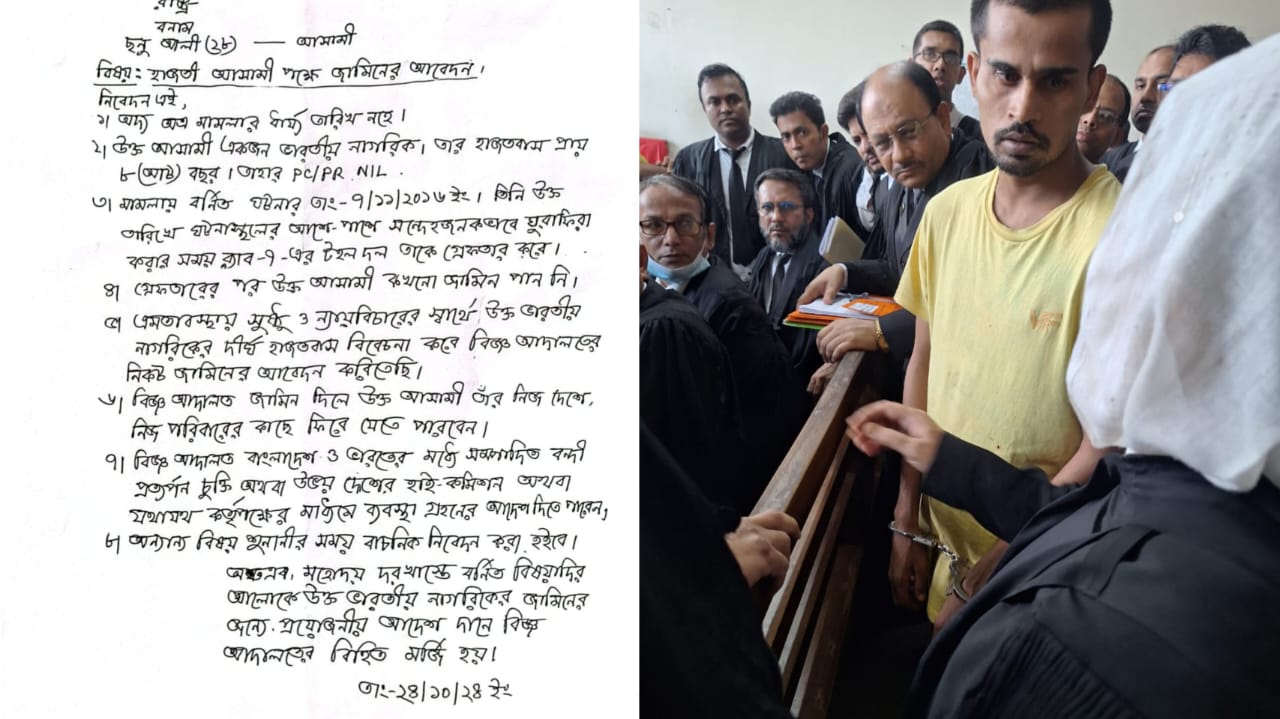 রাষ্ট্র
বনাম
ছনু আলী (২৮) — আসামী
বিষয়: হাজতী আসামী পক্ষে জামিনের আবেদন।
নিবেদন এই,
১। অদ্য অত্র মামলার ধার্য্য তারিখ নহে।
২। উক্ত আসামী একজন ভারতীয় নাগরিক, তার হাজতবাস প্রায়
৮ (আট) বছর। তাহার PC/PR NIL.
৩। মামলায় বর্নিত ঘটনার তাং-৭/১১/২০১৬ ইং। তিনি উক্ত
তারিখে ঘটনাস্থলের আশে-পাশে সন্দেহজনকভাবে ঘুরাফিরা
করার সময় র‍্যাব-৭-এর টহল দল তাকে গ্রেফতার করে।
৪। গ্রেফতারের পর উক্ত আসামী কখনো জামিন পান নি।
৫। এমতাবস্থায় সুষ্ঠু ও ন্যায়বিচারের স্বার্থে উক্ত ভারতীয়
নাগরিকের দীর্ঘ হাজতবাস বিবেচনা করে বিজ্ঞ আদালতের
নিকট জামিনের আবেদন করিতেছি।
৬। বিজ্ঞ আদালত জামিন দিলে উক্ত আসামী তাঁর নিজ দেশে,
নিজ পরিবারের কাছে ফিরে যেতে পারবেন।
৭। বিজ্ঞ আদালত বাংলাদেশ ও ভারতের মধ্যে সম্পাদিত বন্দী
প্রত্যর্পন চুক্তি অথবা উভয় দেশের হাই-কমিশন অথবা
যথাযথ কর্তৃপক্ষের মাধ্যমে ব্যবস্থা গ্রহনের আদেশ দিতে পারেন,
৮। অন্যান্য বিষয় শুনানীর সময় বাচনিক নিবেদন করা হইবে।
অতএব, মহোদয় দরখাস্তে বর্নিত বিষয়াদির
আলোকে উক্ত ভারতীয় নাগরিকের জামিনের
জন্যে প্রয়োজনীয় আদেশ দানে বিজ্ঞ
আদালতের বিহিত মর্জি হয়।
তাং-২৪/১০/২৪ ইং